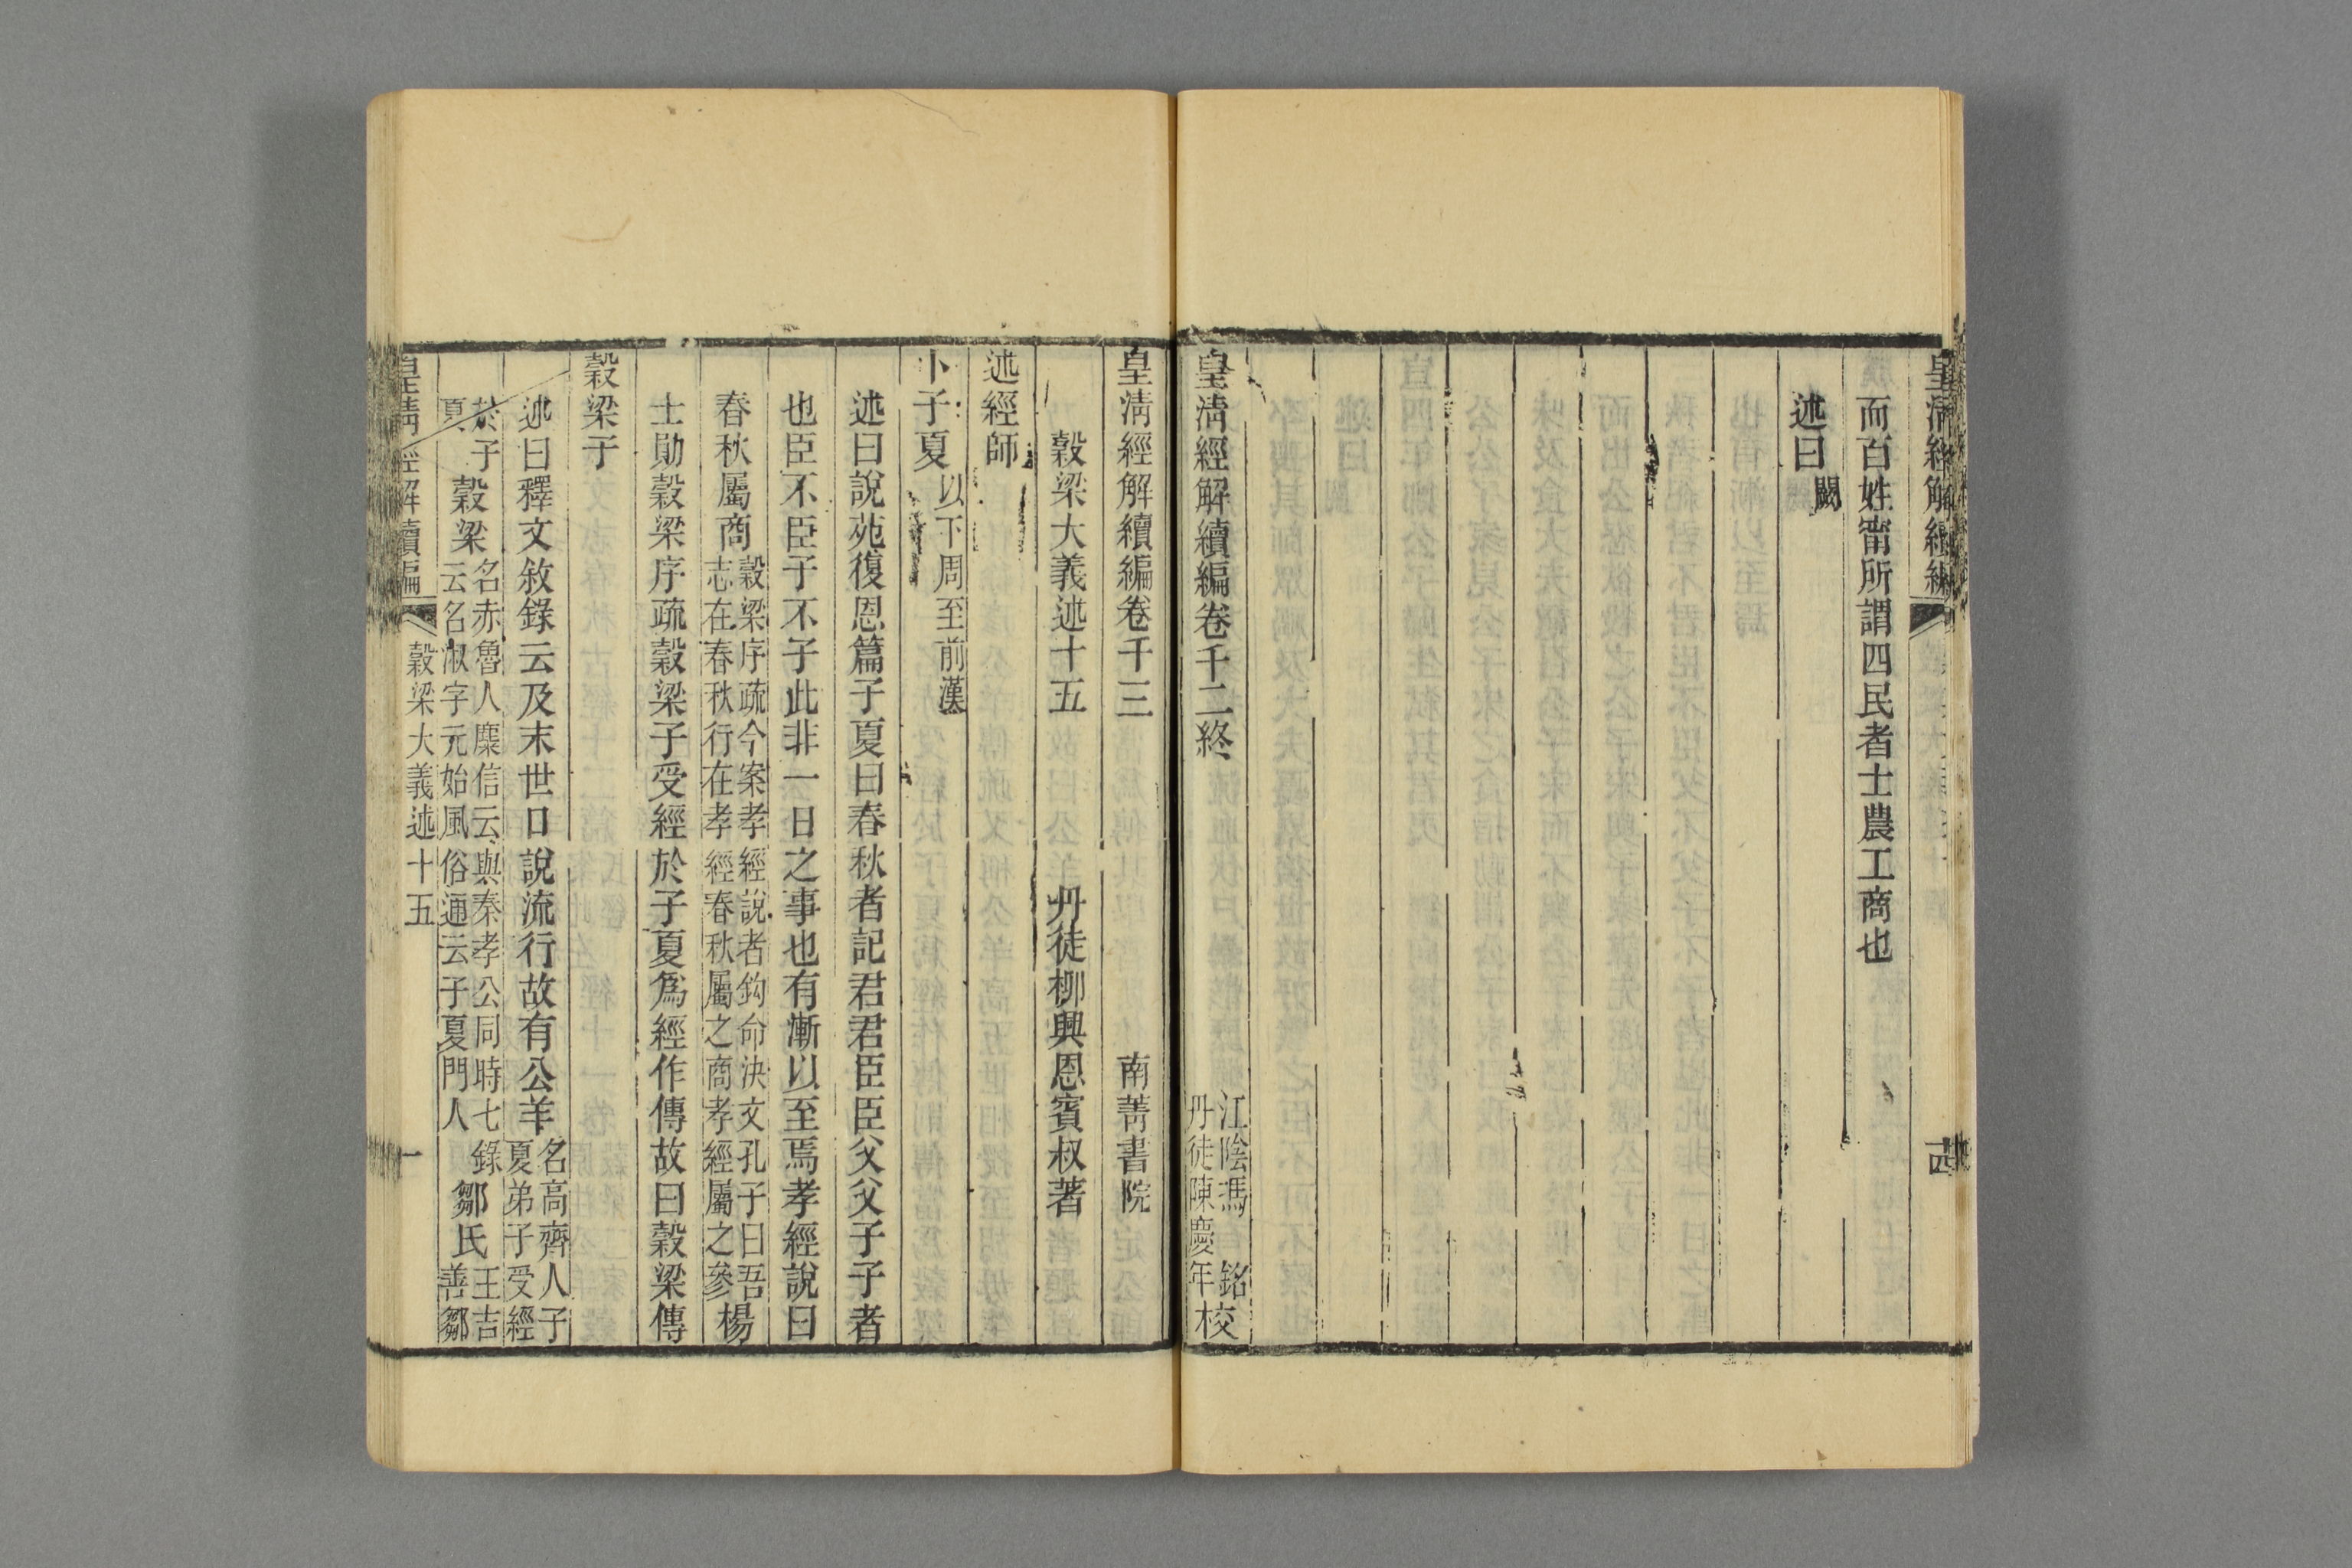 而百姓甯所謂四民者士農工商也
述曰闕
皇淸經解續編卷千二終
江陰馮 銘
丹徒陳慶年校
皇淸經解續編卷千三
南菁書院
穀梁大義述十五
丹徒柳興恩賓叔著
述經師
卜子夏以下周至前漢
述曰說苑復恩篇子夏曰春秋者記君君臣臣父父子子者
也臣不臣子不子此非一日之事也有漸以至焉孝經說曰
春秋屬商穀梁序疏今案孝經說者鈎命決文孔子曰吾
志在春秋行在孝經春秋屬之商孝經屬之參楊
士勛穀梁序疏穀梁子受經於子夏爲經作傳故曰穀梁傳
穀梁子
述曰釋文敘錄云及末世口說流行故有公羊名高齊人子
夏弟子受經
於子
夏穀梁名赤魯人麋信云與秦孝公同時七錄
云名淑字元始風俗通云子夏門人鄒氏王吉
善鄒
皇淸經解續編
穀梁大義述十五
一